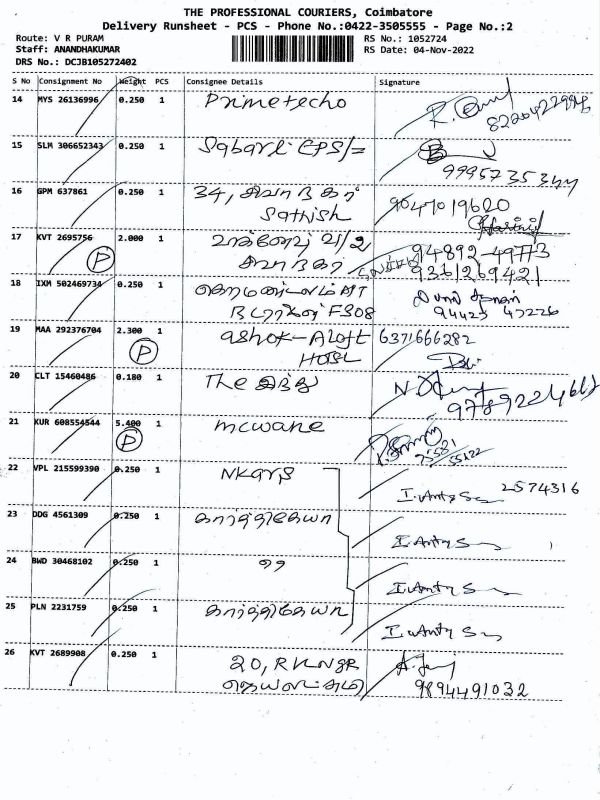 THE PROFESSIONAL COURIERS, Coimbatore
Delivery Runsheet - PCS - Phone No.:0422-3505555 - Page No.:2
Route: V R PURAM
RS No.: 1052724
Staff: ANANDHAKUMAR
RS Date: 04-Nov-2022
DRS No.: DCJB105272402
S No Consignment No Weight PCS Consignee Details Signature
14 MYS 26136996 0.250 1 Primetecho
15 SLM 306652343 0.250 1 Sabari EPS/=
16 GPM 637861 0.250 1 34, சிவா நகர் 9047019620
Sathish
17 KVT 2695756 2.000 1 94892-49773
P சிவா நகர் 9361269421
18 IXM 502469734 0.250 1
F308 94425 47226
19 MAA 292376704 2.300 1 ashok-Aloft 6371666282
P HOTEL
20 CLT 15460486 0.180 1 The இந்து
21 KUR 608554544 5.400 1 mcwane
P
22 VPL 215599390 0.250 1 NKars 2574316
23 DDG 4561309 0.250 1 கார்த்திகேயா
24 BWD 30468102 0.250 1 "
25 PLN 2231759 0.250 1 கார்த்திகேயா
26 KVT 2689908 0.250 1 20, RKNGR
ஜெயலட்சுமி 9894491032